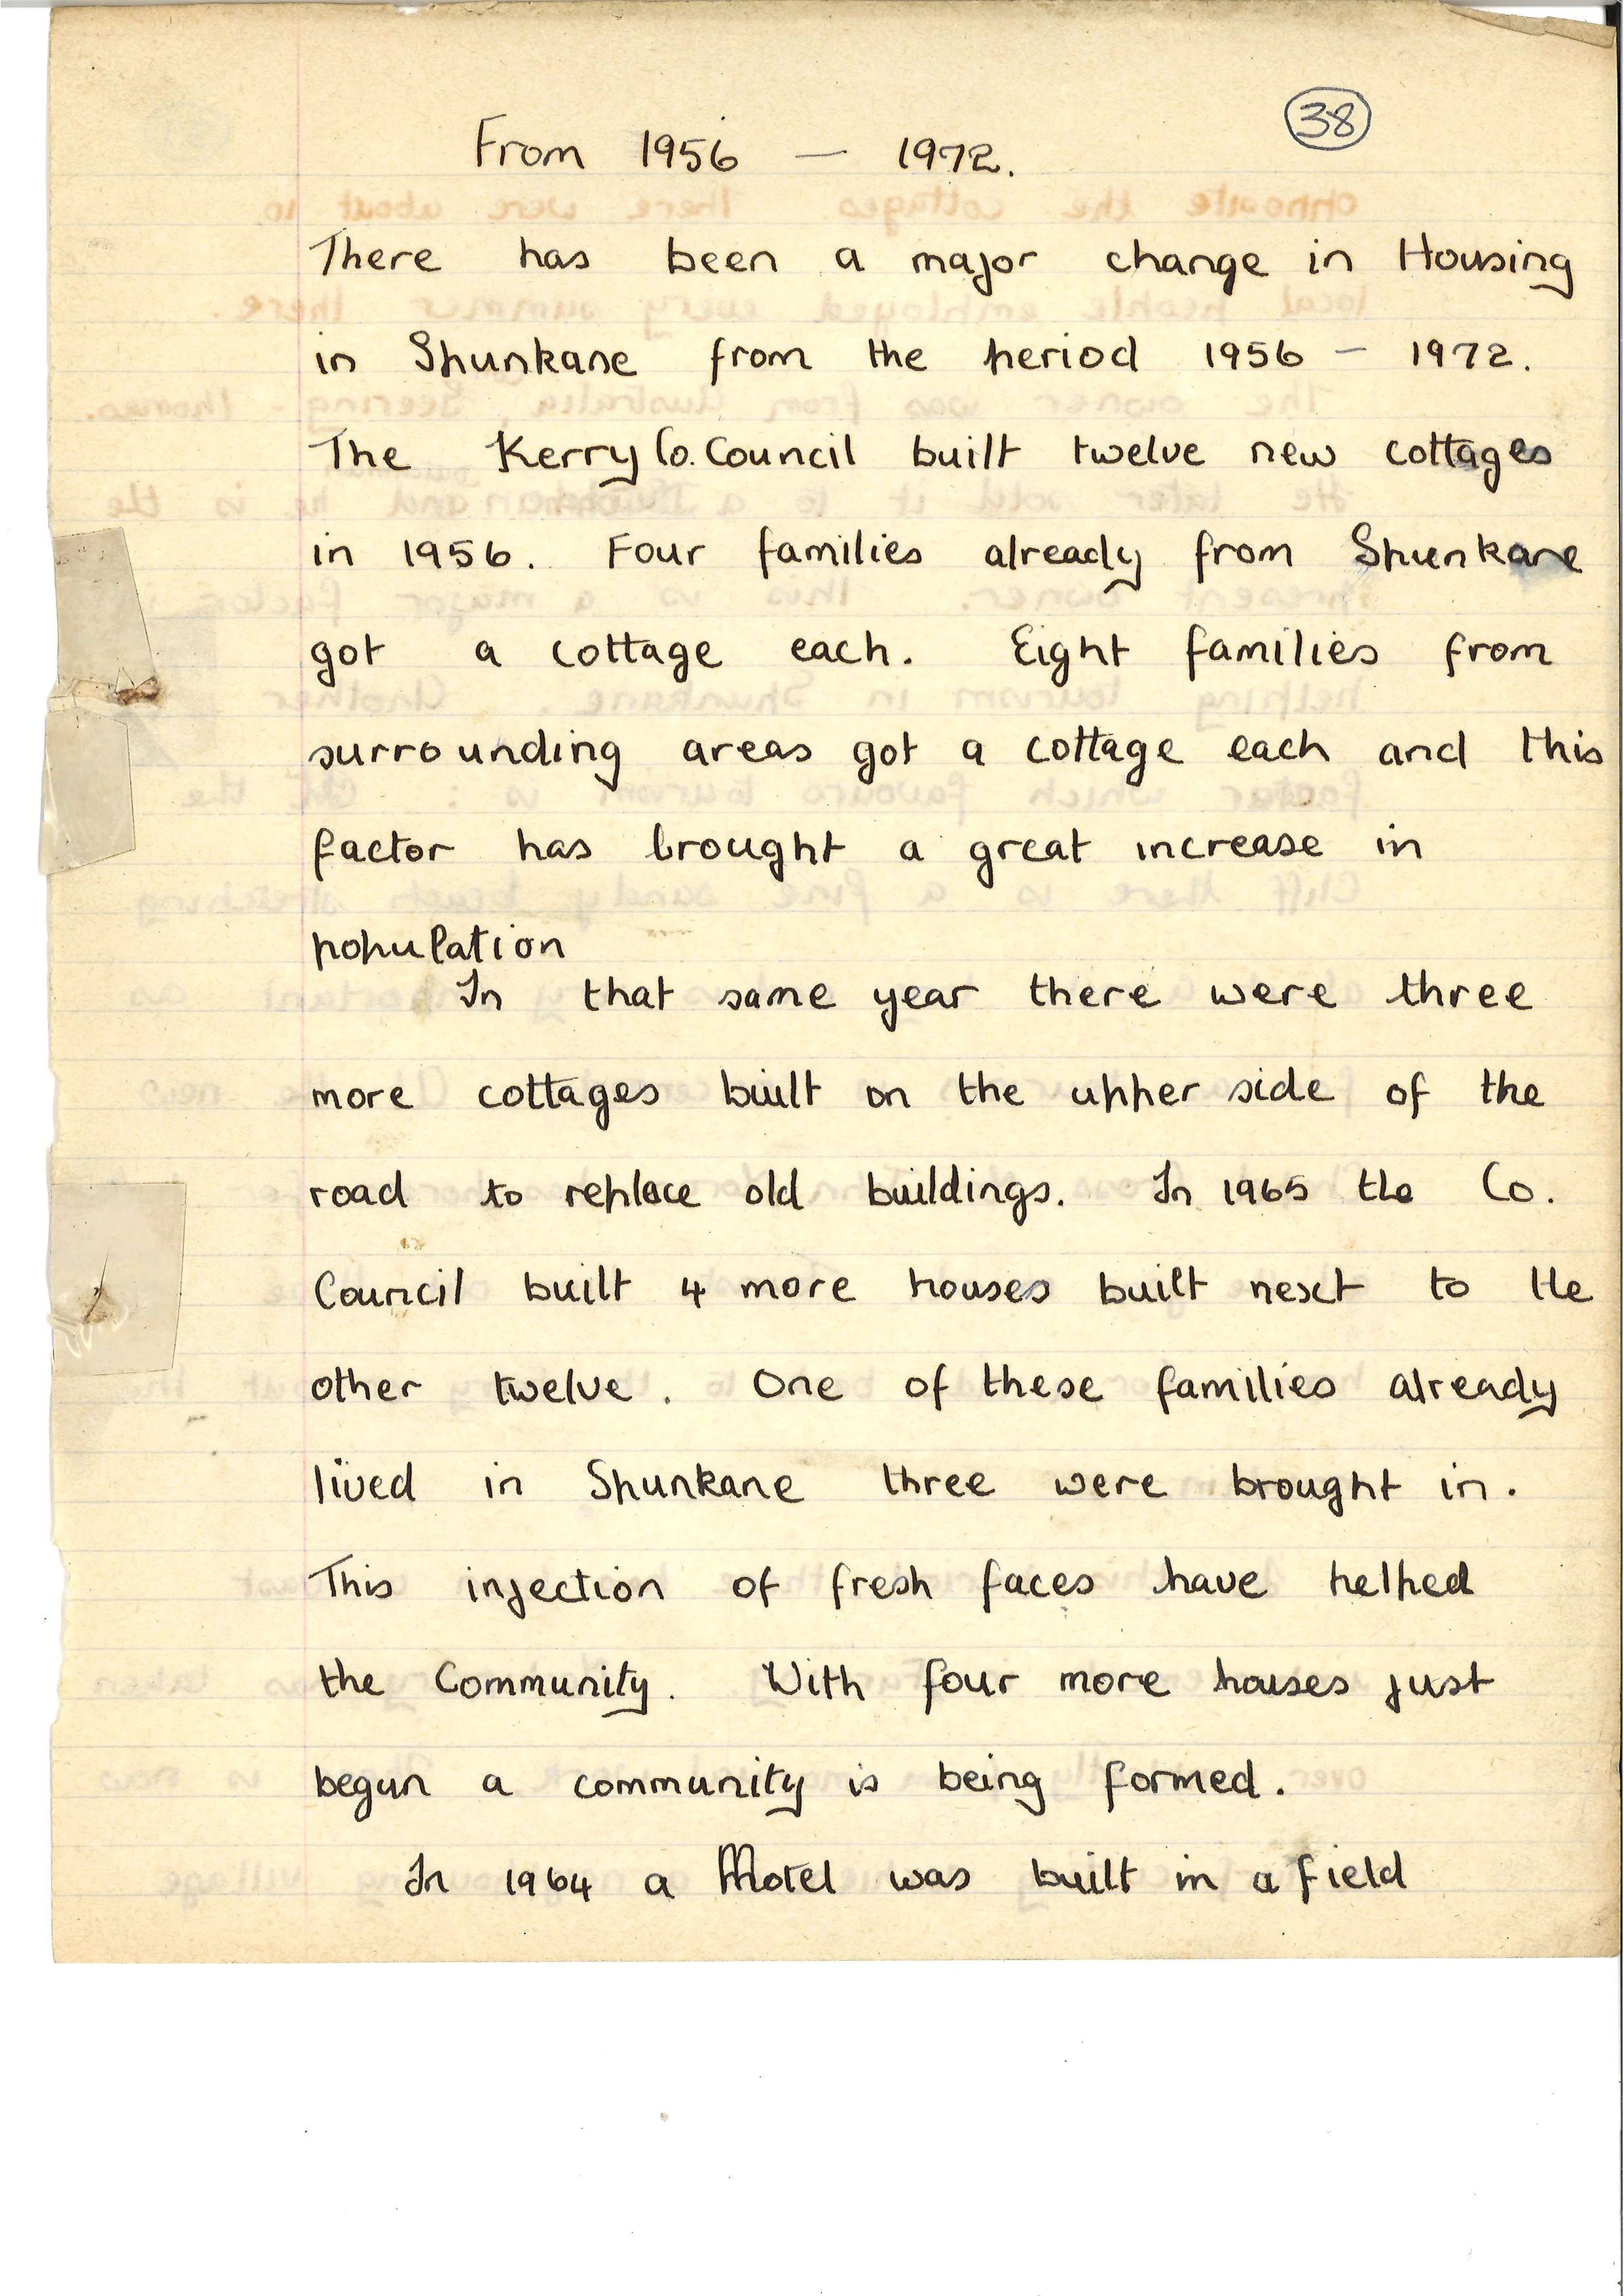 38
From 1956 — 1972.
There has been a major change in Housing
in Spunkane from the period 1956 – 1972.
The Kerry Co. Council built twelve new cottages
in 1956. Four families already from Spunkane
got a cottage each. Eight families from
surrounding areas got a cottage each and this
factor has brought a great increase in
population
In that same year there were three
more cottages built on the upper side of the
road to replace old buildings. In 1965 the Co.
Council built 4 more houses built next to the
other twelve. One of these families already
lived in Spunkane three were brought in.
This injection of fresh faces have helped
the Community. With four more houses just
begun a community is being formed.
In 1964 a Motel was built in a field